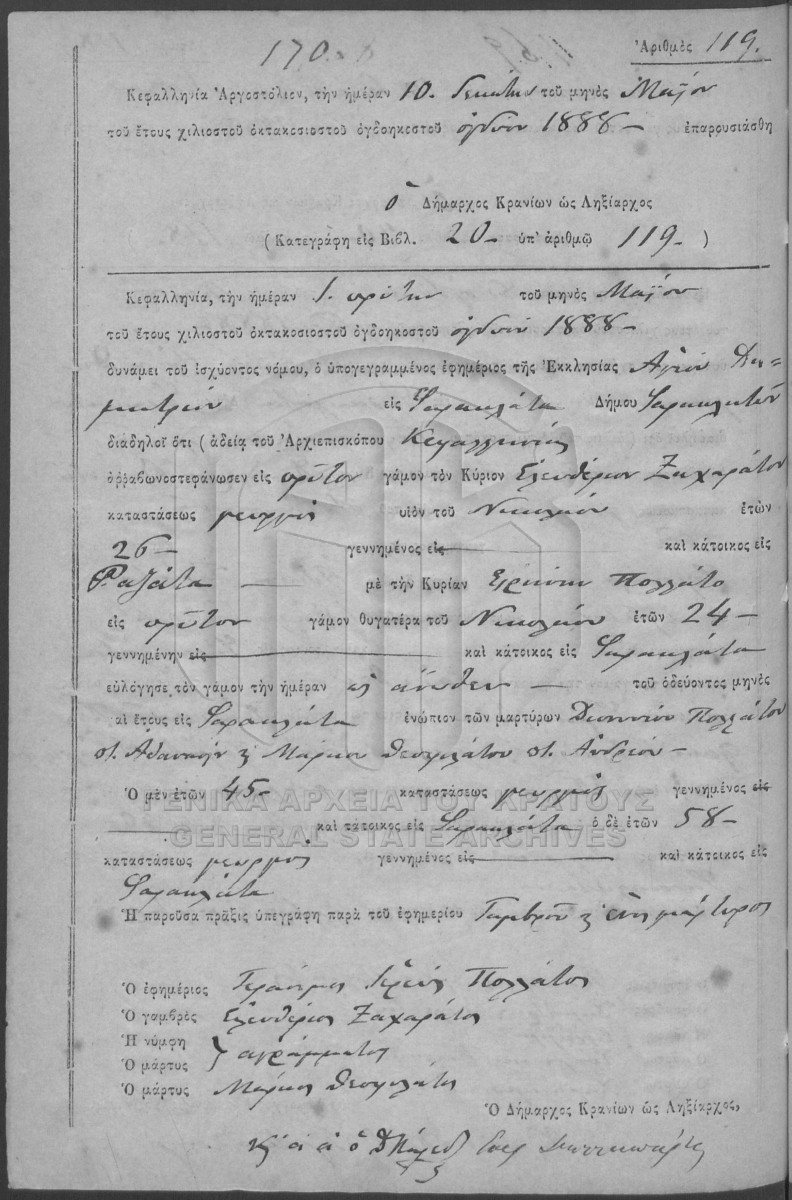 170.
Ἀριθμὸς 119.
Κεφαλληνία Ἀργοστόλιον, τὴν ἡμέραν 10. δεκάτην τοῦ μηνὸς Μαΐου
τοῦ ἔτους χιλιοστοῦ ὀκτακοσιοστοῦ ὀγδοηκοστοῦ ὀγδόου 1888 — ἐπαρουσιάσθη
ὁ Δήμαρχος Κρανίων ὡς Ληξίαρχος
(Κατεγράφη εἰς Βιβλ. 20 — ὑπ' ἀριθμῷ 119 — )
Κεφαλληνία, τὴν ἡμέραν 1. πρώτην τοῦ μηνὸς Μαΐου
τοῦ ἔτους χιλιοστοῦ ὀκτακοσιοστοῦ ὀγδοηκοστοῦ ὀγδόου 1888 —
δυνάμει τοῦ ἰσχύοντος νόμου, ὁ ὑπογεγραμμένος ἐφημέριος τῆς Ἐκκλησίας Ἁγίου Δη-
μητρίου εἰς Φαρακλάτα Δήμου
διαδηλοῖ ὅτι (ἀδείᾳ τοῦ Ἀρχιεπισκόπου Κεφαλληνίας
ἀρραβωνοστεφάνωσεν εἰς πρῶτον γάμον τὸν Κύριον Ἐλευθέριον Ζαχαράτον
καταστάσεως γεωργὸς υἱὸν τοῦ Νικολάου ἐτῶν
26 — γεννημένος εἰς — καὶ κάτοικος εἰς
Ραζάτα — μὲ τὴν Κυρίαν Εἰρήνην Πολλάτο
εἰς πρῶτον γάμον θυγατέρα τοῦ Νικολάου ἐτῶν 24 —
γεννημένην εἰς — καὶ κάτοικος εἰς Φαρακλάτα
εὐλόγησε τὸν γάμον τὴν ἡμέραν ὡς ἄνωθεν — τοῦ ὁδεύοντος μηνὸς
αὶ ἔτους εἰς Φαρακλάτα ἐνώπιον τῶν μαρτύρων Διονυσίου Πολλάτου
π. Ἀθανασίου & Μάρκου Θεοφιλάτου π. Ἀνδρέου —
Ὁ μὲν ἐτῶν 45 — καταστάσεως γεωργὸς γεννημένος εἰς
— καὶ κάτοικος εἰς Φαρακλάτα ὁ δὲ ἐτῶν 58 —
καταστάσεως γεωργὸς γεννημένος εἰς — καὶ κάτοικος εἰς
Φαρακλάτα
Ἡ παροῦσα πρᾶξις ὑπεγράφη παρὰ τοῦ ἐφημερίου Γαμβροῦ & ἑνὸς μάρτυρος
Ὁ ἐφημέριος Γεράσιμος Ἱερεὺς Πολλάτος
Ὁ γαμβρὸς Ἐλευθέριος Ζαχαράτος
Ἡ νύμφη
Ὁ μάρτυς } ἀγράμματος
Ὁ μάρτυς Μάρκος Θεοφιλάτος
Ὁ Δήμαρχος Κρανίων ὡς Ληξίαρχος,
ΓΕΝΙΚΑ ΑΡΧΕΙΑ ΤΟΥ ΚΡΑΤΟΥΣ
GENERAL STATE ARCHIVES